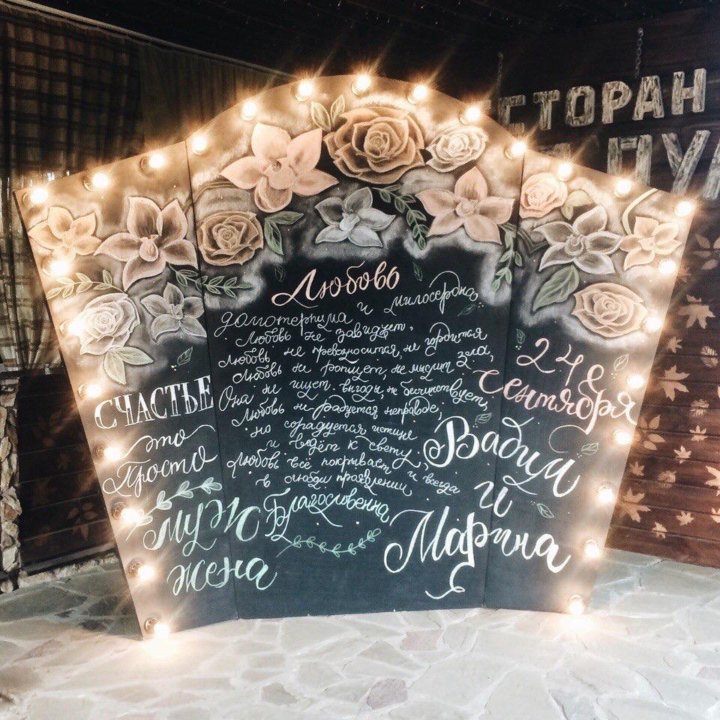 РЕСТОРАН
Любовь
долготерпима и милосердна
Любовь не завидует,
Любовь не превозносится, не гордится
Любовь не ропщет, не мыслит зла,
Она не ищет выгоды, не бесчинствует,
Любовь не радуется неправде,
но сорадуется истине
и ведёт к свету,
Любовь всё покрывает и всегда
в любви проявлении
Благословенна
СЧАСТЬЕ
это
просто
муж
жена
24
Сентября
Вадим
и
Марина